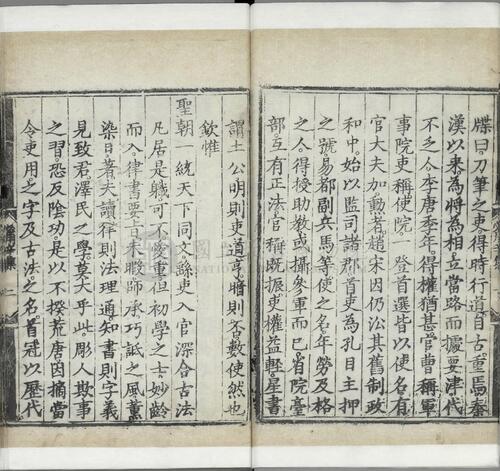 牒曰刀筆之吏得時行道自古重焉秦
漢以来為將為相立當路而據要津代
不乏人李唐季年得權猶甚官曹稱軍
事院吏稱使院一登首選皆以使名有
官大夫加勳者趙宋因仍訟其舊制政
和中始以監司諸郡首吏為孔目主押
之號易都副兵馬等使之名年勞及格
之人得授助教或攝參軍而已省院臺
部互有正法官稱既振吏權益輕星書
謂土公明則吏道亨暗則否數使然也
欽惟
聖朝一統天下同文繇吏入官深合古法
凡居是軄可不愛重但初學之士妙齡
而入律書要旨未嫺師承巧詆之風薰
染日著夫讀律則法理通知書則字義
見致君澤民之學莫大乎此彫人欺事
之習恐反陰功是以不揆荒唐因摘當
今吏用之字及古法之名首冠以歷代